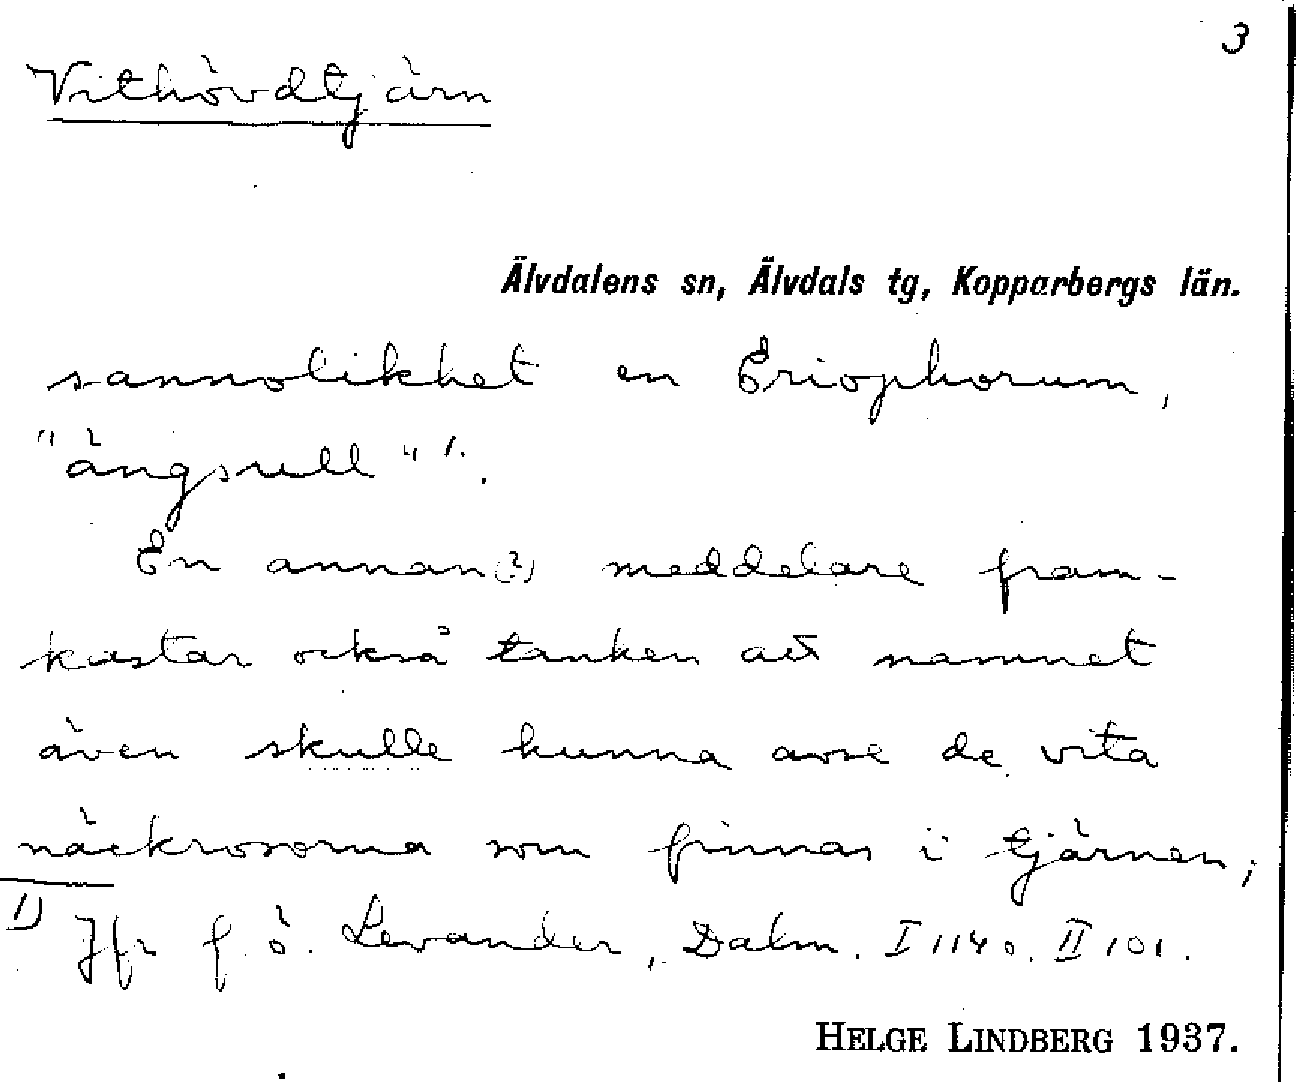 3
Vithövdtjärn
Älvdalens sn, Älvdals tg, Kopparbergs län.
sannolikhet en Eriophorum,
"ängsull" 1.
En annan(?) meddelare fram-
kastar också tanken att namnet
även skulle kunna avse de vita
näckrosorna som finnas i tjärnen;
1) Jfr f. ö. Levander, Dalm. I 114 o. II 101.
HELGE LINDBERG 1937.